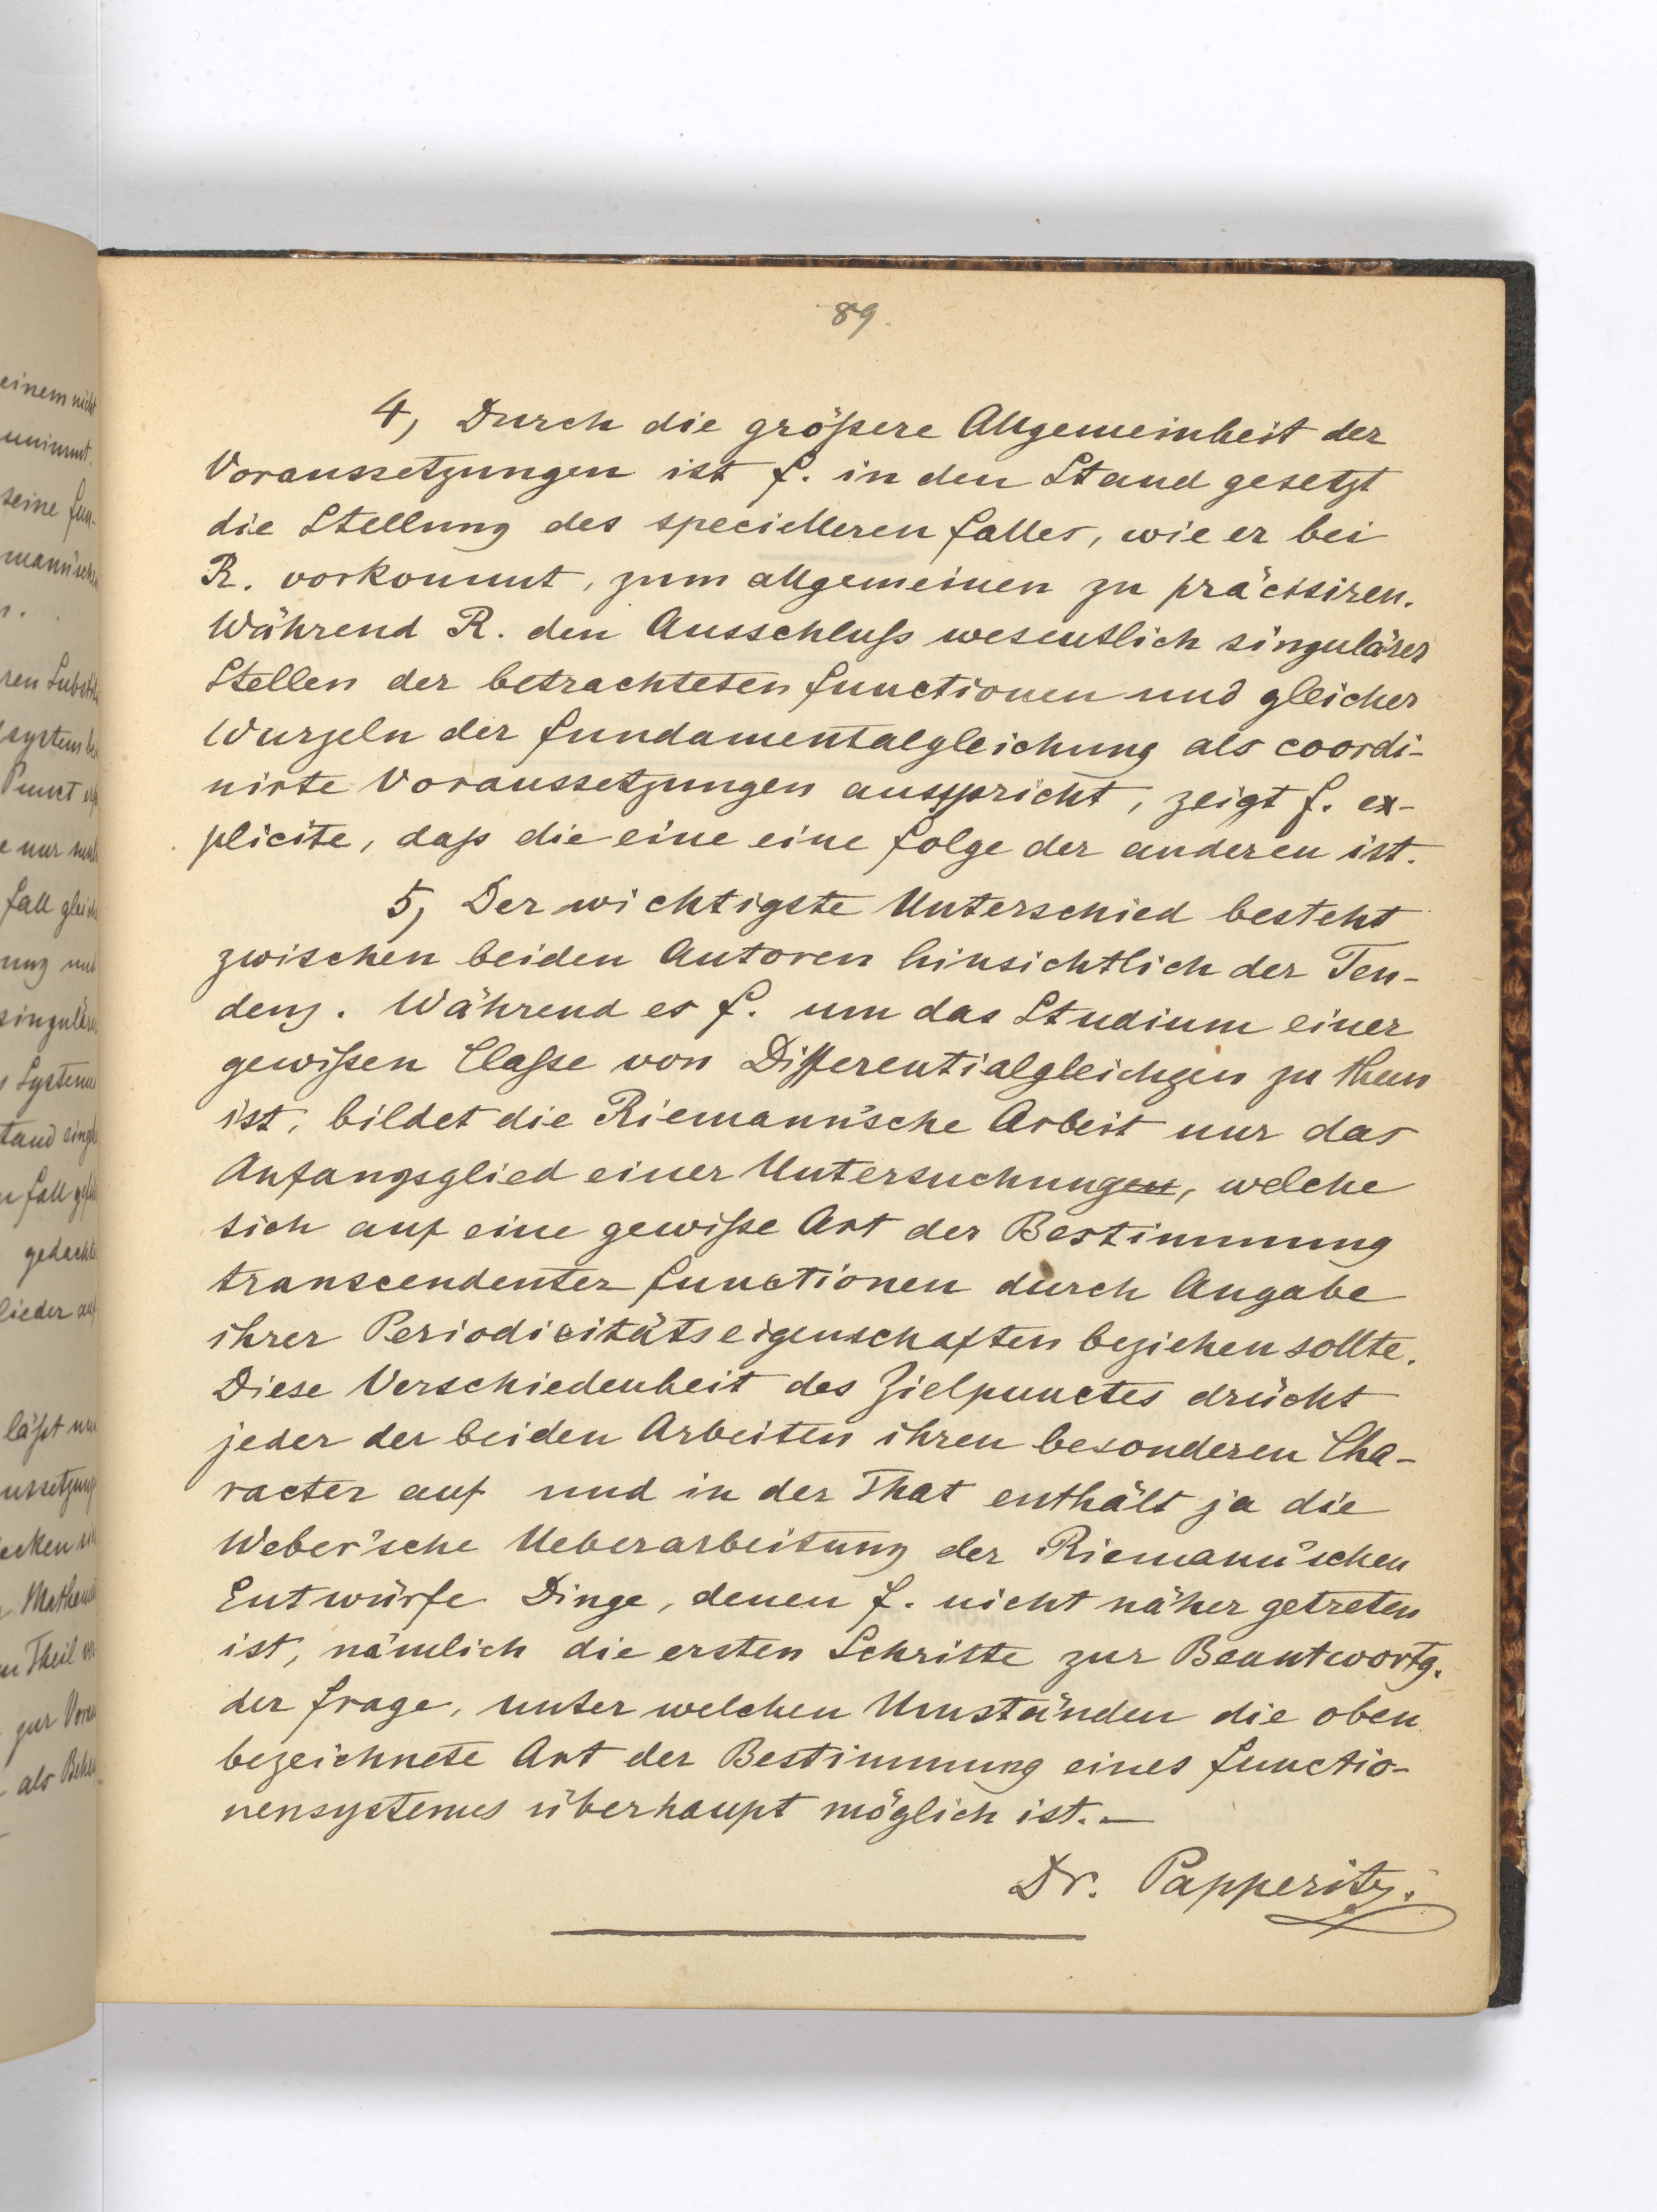 89.
4, Durch die größere Allgemeinheit der
Voraussetzungen ist F. in den Stand gesetzt
die Stellung des specielleren Falles, wie er bei
R. vorkommt, zum allgemeinen zu präcisiren.
Während R. den Ausschluß wesentlich singulärer
Stellen der betrachteten Functionen und gleicher
Wurzeln der Fundamentalgleichung als coordi-
nirte Voraussetzungen ausspricht, zeigt F. ex-
plicite, daß die eine eine Folge der anderen ist.
5, Der wichtigste Unterschied besteht
zwischen beiden Autoren hinsichtlich der Ten-
denz. Während es F. um das Studium einer
gewißen Claße von Differentialgleichgen zu thun
ist, bildet die Riemann'sche Arbeit nur das
Anfangsglied einer Untersuchungen, welche
sich auf eine gewiße Art der Bestimmung
transcendenter Functionen durch Angabe
ihrer Periodicitätseigenschaften beziehen sollte.
Diese Verschiedenheit des Zielpunctes drückt
jeder der beiden Arbeiten ihren besonderen Cha-
racter auf und in der That enthält ja die
Weber'sche Ueberarbeitung der Riemann'schen
Entwürfe Dinge, denen F. nicht näher getreten
ist, nämlich die ersten Schritte zur Beantwortg.
der Frage, unter welchen Umständen die oben
bezeichnete Art der Bestimmung eines Functio-
nensystemes überhaupt möglich ist.—
Dr. Papperitz.
einem nicht
seine Fun-
Punct
e nur
Fall gleich
singulärer
Systeme
gedachte
lieder auf
läßt nun
Theil
zur
als